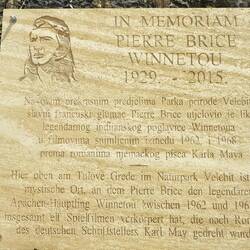 IN MEMORIAM
PIERRE BRICE
WINNETOU
1929. - 2015.
Na ovim prekrasnim predjelima Parka prirode Velebit
slavni francuski glumac Pierre Brice utjelovio je lik
legendarnog indijanskog poglavice Winnetoua
u filmovima snimljenim između 1962. i 1968.
prema romanima njemačkog pisca Karla Maya.
Hier oben am Tulove Grede im Naturpark Velebit ist
mystische Ort, an dem Pierre Brice den legendären
Apachen-Häuptling Winnetou zwischen 1962 und 196
insgesamt elf Spielfilmen verkörpert hat, die nach Rom
des deutschen Schriftstellers Karl May gedreht wurd